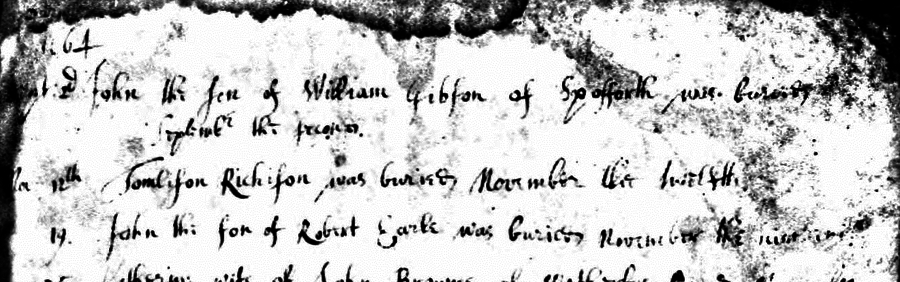 164
2d John the son of William Gibson of Spofforth was buried
Septembr the second.
12th Tomlison Richison was buried November the twelfth.
19. John the son of Robert was buried November the
wife of John of